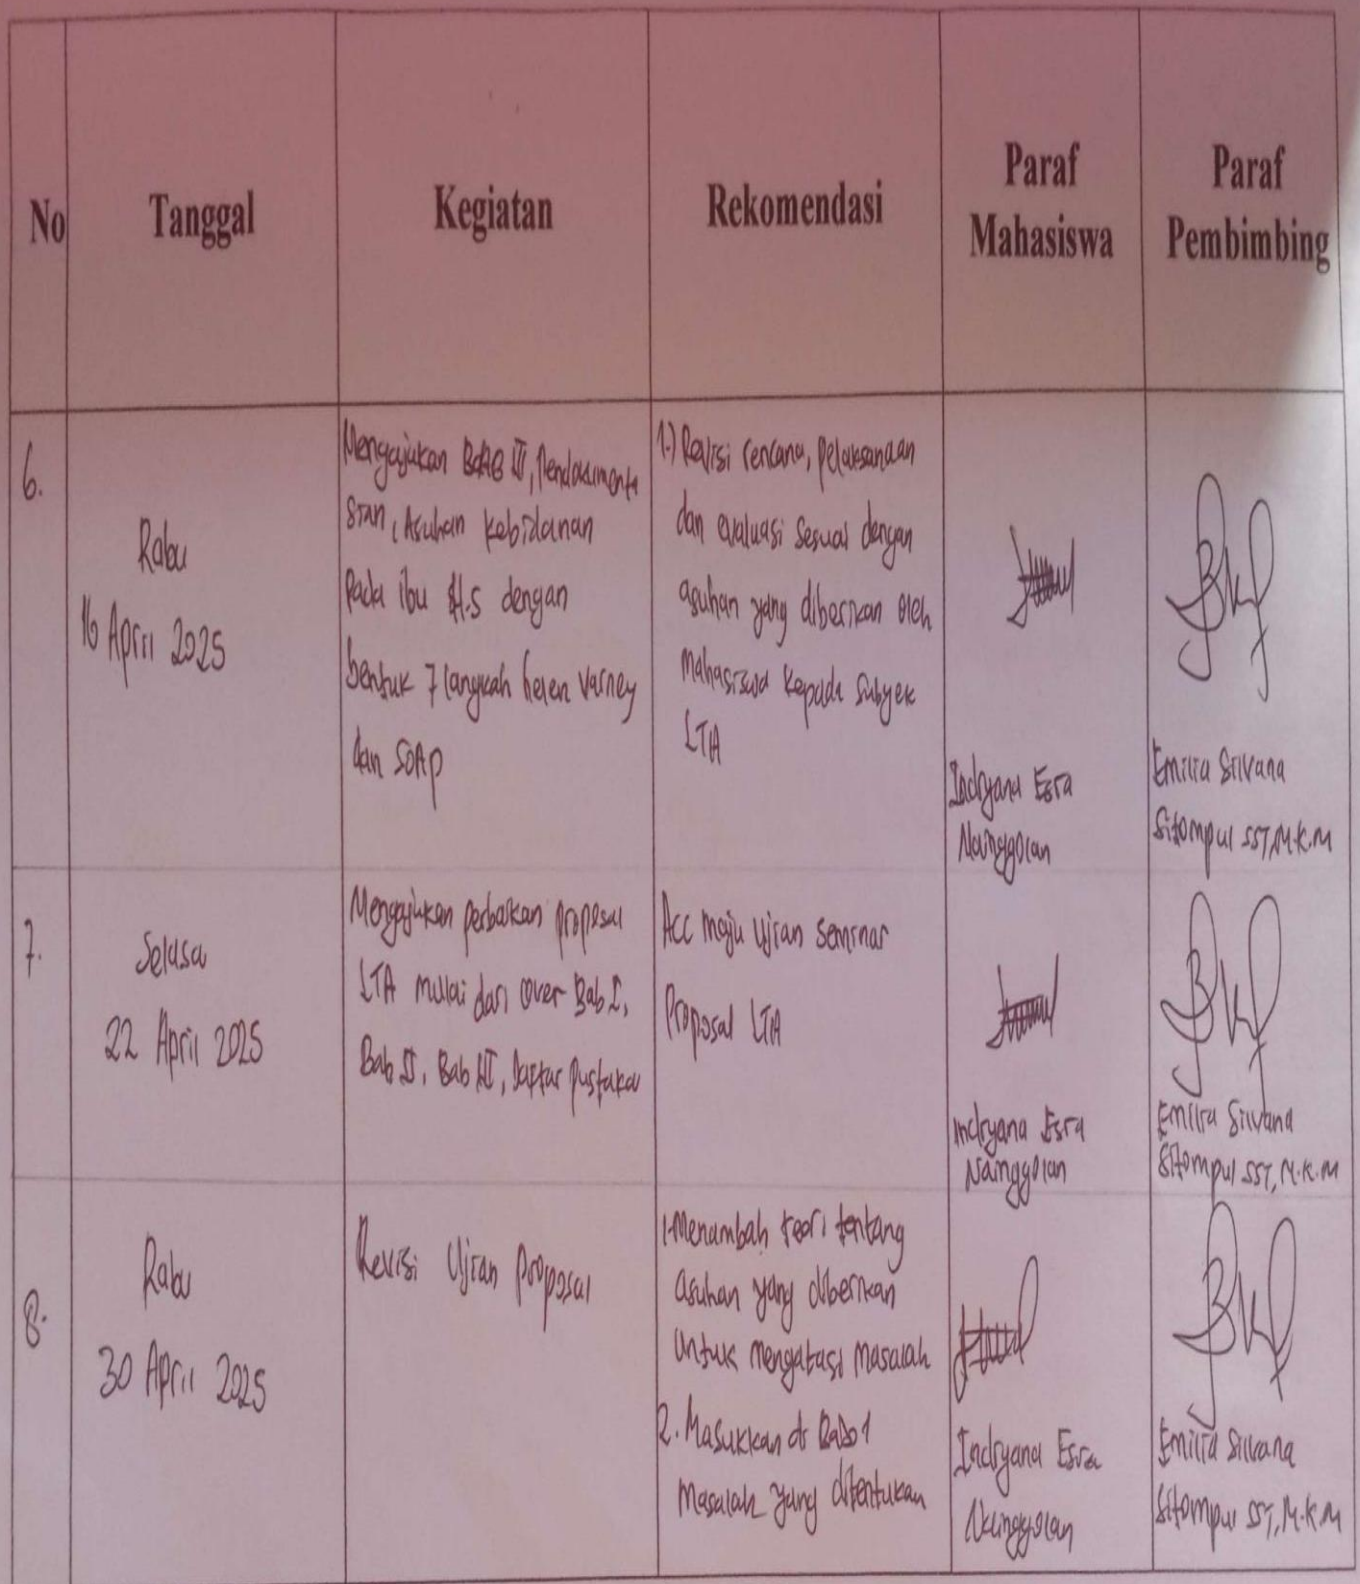 No
Tanggal
Kegiatan
Rekomendasi
Paraf
Mahasiswa
Paraf
Pembimbing
6.
Rabu
16 April 2025
Mengajukan BAB III, Pendokumenta
sian, Asuhan Kebidanan
pada ibu H.S dengan
bentuk 7 langkah helen varney
dan SOAP
1.) Revisi rencana, pelaksanaan
dan evaluasi sesuai dengan
asuhan yang diberikan oleh
mahasiswa kepada subyek
LTA
Indryana Esra
Nainggolan
Emilia Silvana
Sitompul SST, M.K.M
7.
Selasa
22 April 2025
Mengajukan perbaikan proposal
LTA mulai dari cover Bab I,
Bab II, Bab III, Daftar pustaka
Acc maju Ujian Seminar
Proposal LTA
Indryana Esra
Nainggolan
Emilia Silvana
Sitompul SST, M.K.M
8.
Rabu
30 April 2025
Revisi Ujian proposal
1. Menambah teori tentang
asuhan yang diberikan
untuk mengatasi masalah
2. Masukkan di Bab 1
masalah yang ditentukan
Indryana Esra
Nainggolan
Emilia Silvana
Sitompul SST, M.K.M